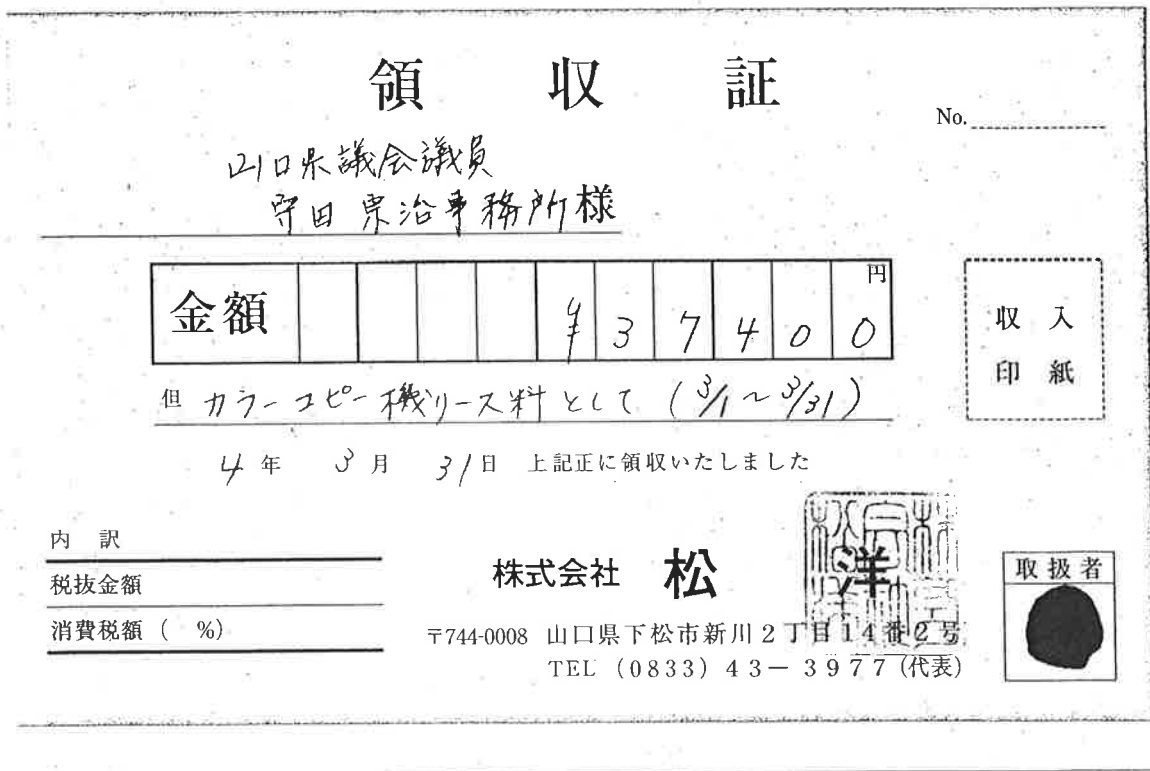 領収証
No.
山口県議会議員
守田宗治事務所様
金額 ¥37400円
但 カラーコピー機リース料として (3/1～3/31)
4年 3月 31日 上記正に領収いたしました
収入
印紙
内訳
税抜金額
消費税額 ( %)
株式会社 松洋
取扱者
〒744-0008 山口県下松市新川2丁目14番2号
TEL (0833) 43－3977 (代表)